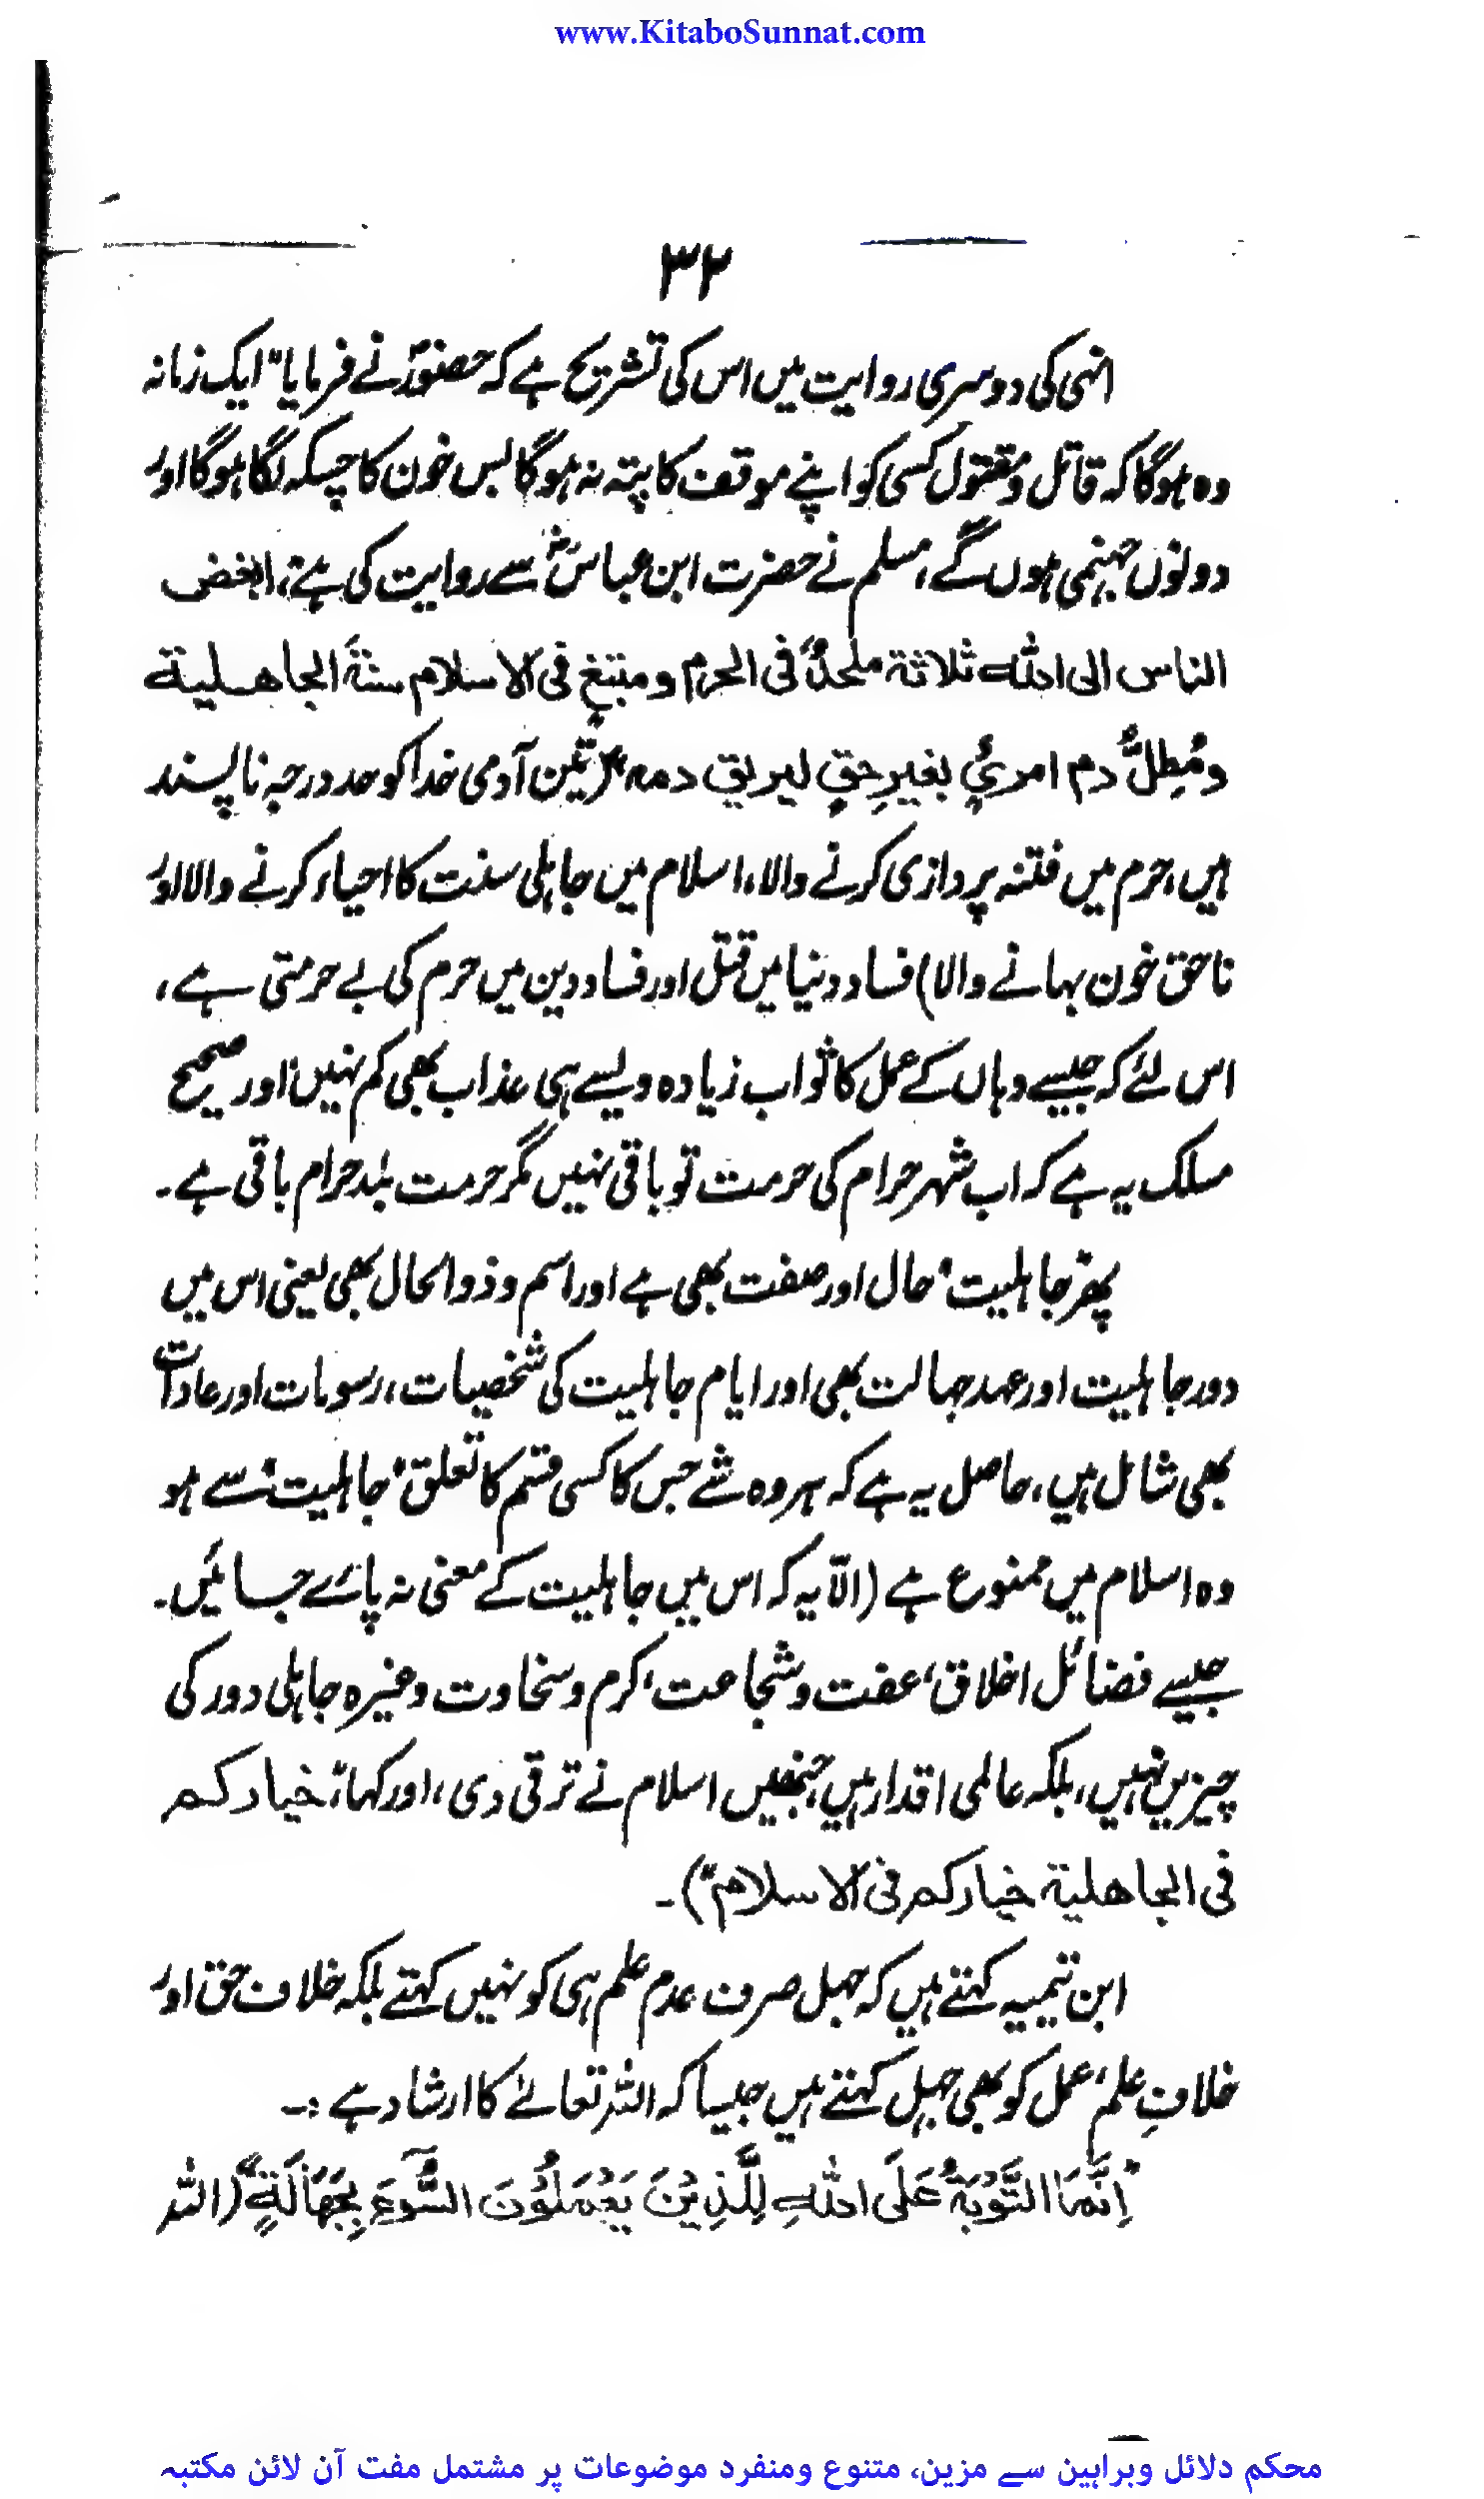 www.KitaboSunnat.com
۳۲
انہی کی دوسری روایت میں اس کی تشریح ہے کہ حضورؐ نے فرمایا "ایک زمانہ
وہ ہوگا کہ قاتل و مقتول کسی کو اپنے موقف کا پتہ نہ ہوگا بس خون کا چسکہ لگا ہوگا اور
دونوں جہنمی ہوں گے، مسلم نے حضرت ابن عباسؓ سے روایت کی ہے، "ابغض
الناس الی اللہ ثلاثة ملحدٌ فی الحرم و مبتغٍ فی الاسلام سنةَ الجاهلیة
ومُطِلُّ دم امرئٍ بغیرِ حقٍ لیریق دمه" (تین آدمی خدا کو حد درجہ ناپسند
ہیں، حرم میں فتنہ پردازی کرنے والا، اسلام میں جاہلی سنت کا احیاء کرنے والا اور
ناحق خون بہانے والا) فساد دنیا میں قتل اور فساد دین میں حرم کی بے حرمتی ہے،
اس لئے کہ جیسے وہاں کے عمل کا ثواب زیادہ ویسے ہی عذاب بھی کم نہیں، اور صحیح
مسلک یہ ہے کہ اب شہر حرام کی حرمت تو باقی نہیں مگر حرمت بلد حرام باقی ہے۔
پھر 'جاہلیت' حال اور صفت بھی ہے اور اسم و ذوالحال بھی یعنی اس میں
دور جاہلیت اور عہد جہالت بھی اور ایام جاہلیت کی شخصیات، رسومات اور عادات
بھی شامل ہیں، حاصل یہ ہے کہ ہر وہ شے جس کا کسی قسم کا تعلق 'جاہلیت' سے ہو
وہ اسلام میں ممنوع ہے (الاّ یہ کہ اس میں جاہلیت کے معنی نہ پائے جائیں۔
جیسے فضائل اخلاق، عفت و شجاعت، کرم و سخاوت وغیرہ جاہلی دور کی
چیزیں نہیں، بلکہ عالمی اقدار ہیں جنھیں اسلام نے ترقی دی، اور کہا، "خیارکم
فی الجاهلیة خیارکم فی الاسلام")۔
ابن تیمیہ کہتے ہیں کہ جہل صرف عدم علم ہی کو نہیں کہتے بلکہ خلاف حق اور
خلافِ علم، عمل کو بھی جہل کہتے ہیں جیسا کہ اللہ تعالےٰ کا ارشاد ہے :۔
"اِنَّمَا التَّوْبَةُ عَلَی اللهِ لِلَّذِیْنَ یَعْمَلُوْنَ السُّوْٓءَ بِجَهَالَةٍ" (اللہ
محکم دلائل وبراہین سے مزین، متنوع ومنفرد موضوعات پر مشتمل مفت آن لائن مکتبہ